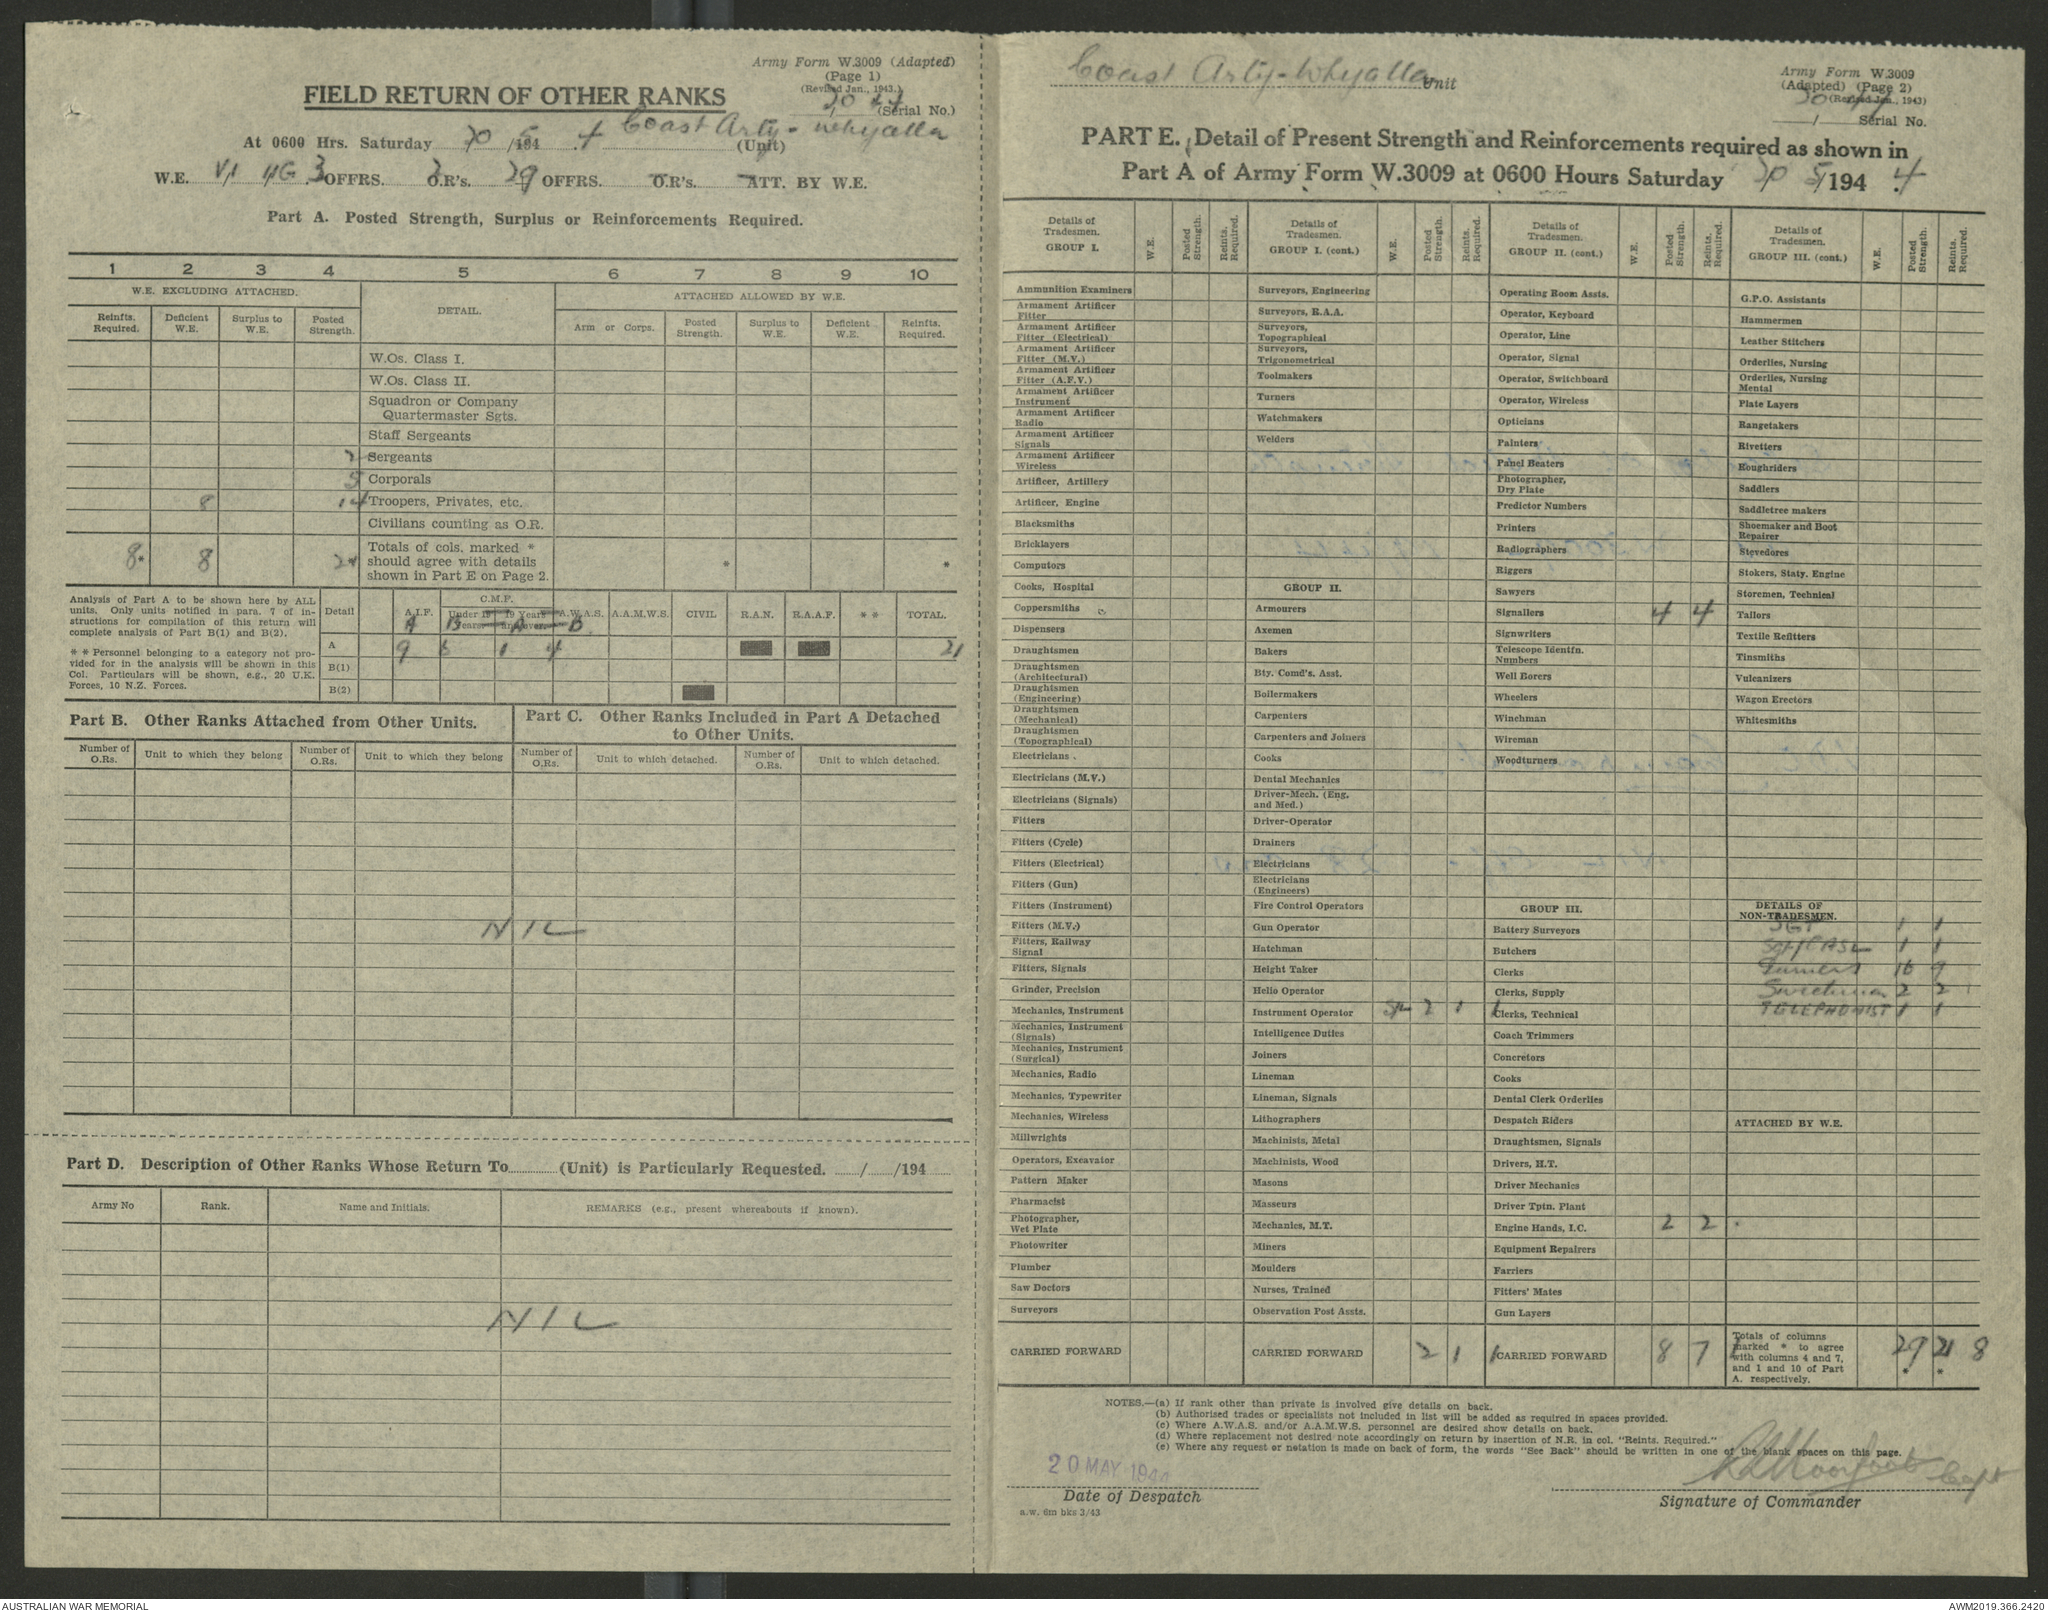 Army Form W.3009 (Adapted)
(Page 1)
(Revised Jan., 1943.)
(Serial No.)
FIELD RETURN OF OTHER RANKS
At 0600 Hrs. Saturday 20/5/1944 Coast Arty - Whyalla (Unit)
W.E. OFFRS. 3 O.R's. 29 OFFRS. — O.R's. — ATT. BY W.E.
Part A. Posted Strength, Surplus or Reinforcements Required.
1 2 3 4 5 6 7 8 9 10
W.E. EXCLUDING ATTACHED. DETAIL. ATTACHED ALLOWED BY W.E.
Reinfts. Required. Deficient W.E. Surplus to W.E. Posted Strength. Arm or Corps. Posted Strength. Surplus to W.E. Deficient W.E. Reinfts. Required.
W.Os. Class I.
W.Os. Class II.
Squadron or Company Quartermaster Sgts.
Staff Sergeants
2 Sergeants
5 Corporals
8 14 Troopers, Privates, etc.
Civilians counting as O.R.
8* 8 21 Totals of cols. marked * should agree with details shown in Part E on Page 2. * *
Analysis of Part A to be shown here by ALL units. Only units notified in para. 7 of instructions for compilation of this return will complete analysis of Part B(1) and B(2).
** Personnel belonging to a category not provided for in the analysis will be shown in this Col. Particulars will be shown, e.g., 20 U.K. Forces, 10 N.Z. Forces.
Detail A.I.F. C.M.F. Under 19 Years. 19 Years and over. A.W.A.S. A.A.M.W.S. CIVIL R.A.N. R.A.A.F. ** TOTAL.
A B A B
A 9 1 4 21
B(1)
B(2)
Part B. Other Ranks Attached from Other Units.
Part C. Other Ranks Included in Part A Detached to Other Units.
Number of O.Rs. Unit to which they belong Number of O.Rs. Unit to which they belong Number of O.Rs. Unit to which detached. Number of O.Rs. Unit to which detached.
NIL
Part D. Description of Other Ranks Whose Return To (Unit) is Particularly Requested. / /194
Army No Rank. Name and Initials. REMARKS (e.g., present whereabouts if known).
NIL
Coast Arty - Whyalla Unit
Army Form W.3009
(Adapted) (Page 2)
(Revised Jan., 1943)
Serial No.
PART E. Detail of Present Strength and Reinforcements required as shown in
Part A of Army Form W.3009 at 0600 Hours Saturday 20/5/1944
Details of Tradesmen. GROUP I. W.E. Posted Strength. Reints. Required.
Ammunition Examiners
Armament Artificer Fitter
Armament Artificer Fitter (Electrical)
Armament Artificer Fitter (M.V.)
Armament Artificer Fitter (A.F.V.)
Armament Artificer Instrument
Armament Artificer Radio
Armament Artificer Signals
Armament Artificer Wireless
Artificer, Artillery
Artificer, Engine
Blacksmiths
Bricklayers
Computors
Cooks, Hospital
Coppersmiths
Dispensers
Draughtsmen
Draughtsmen (Architectural)
Draughtsmen (Engineering)
Draughtsmen (Mechanical)
Draughtsmen (Topographical)
Electricians
Electricians (M.V.)
Electricians (Signals)
Fitters
Fitters (Cycle)
Fitters (Electrical)
Fitters (Gun)
Fitters (Instrument)
Fitters (M.V.)
Fitters, Railway Signal
Fitters, Signals
Grinder, Precision
Mechanics, Instrument
Mechanics, Instrument (Signals)
Mechanics, Instrument (Surgical)
Mechanics, Radio
Mechanics, Typewriter
Mechanics, Wireless
Millwrights
Operators, Excavator
Pattern Maker
Pharmacist
Photographer, Wet Plate
Photowriter
Plumber
Saw Doctors
Surveyors
CARRIED FORWARD
Details of Tradesmen. GROUP I. (cont.) W.E. Posted Strength. Reints. Required.
Surveyors, Engineering
Surveyors, R.A.A.
Surveyors, Topographical
Surveyors, Trigonometrical
Toolmakers
Turners
Watchmakers
Welders
GROUP II.
Armourers
Axemen
Bakers
Bty. Comd's. Asst.
Boilermakers
Carpenters
Carpenters and Joiners
Cooks
Dental Mechanics
Driver-Mech. (Eng. and Med.)
Driver-Operator
Drainers
Electricians
Electricians (Engineers)
Fire Control Operators
Gun Operator
Hatchman
Height Taker
Helio Operator
Instrument Operator 2 1 1
Intelligence Duties
Joiners
Lineman
Lineman, Signals
Lithographers
Machinists, Metal
Machinists, Wood
Masons
Masseurs
Mechanics, M.T.
Miners
Moulders
Nurses, Trained
Observation Post Assts.
CARRIED FORWARD 2 1 1
Details of Tradesmen. GROUP II. (cont.) W.E. Posted Strength. Reints. Required.
Operating Room Assts.
Operator, Keyboard
Operator, Line
Operator, Signal
Operator, Switchboard
Operator, Wireless
Opticians
Painters
Panel Beaters
Photographer, Dry Plate
Predictor Numbers
Printers
Radiographers
Riggers
Sawyers
Signallers 4 4
Signwriters
Telescope Identfn. Numbers
Well Borers
Wheelers
Winchman
Wireman
Woodturners
GROUP III.
Battery Surveyors
Butchers
Clerks
Clerks, Supply
Clerks, Technical
Coach Trimmers
Concretors
Cooks
Dental Clerk Orderlies
Despatch Riders
Draughtsmen, Signals
Drivers, H.T.
Driver Mechanics
Driver Tptn. Plant
Engine Hands, I.C. 2 2
Equipment Repairers
Farriers
Fitters' Mates
Gun Layers
CARRIED FORWARD 8 7 1
Details of Tradesmen. GROUP III. (cont.) W.E. Posted Strength. Reints. Required.
G.P.O. Assistants
Hammermen
Leather Stitchers
Orderlies, Nursing
Orderlies, Nursing Mental
Plate Layers
Rangetakers
Rivetters
Roughriders
Saddlers
Saddletree makers
Shoemaker and Boot Repairer
Stevedores
Stokers, Staty. Engine
Storemen, Technical
Tailors
Textile Refitters
Tinsmiths
Vulcanizers
Wagon Erectors
Whitesmiths
DETAILS OF NON-TRADESMEN.
SGT 1 1
1 1
Gunners 16 9
2 2
TELEPHONIST 1 1
ATTACHED BY W.E.
Totals of columns marked * to agree with columns 4 and 7, and 1 and 10 of Part A. respectively. 29 21 8
* *
NOTES.—(a) If rank other than private is involved give details on back.
(b) Authorised trades or specialists not included in list will be added as required in spaces provided.
(c) Where A.W.A.S. and/or A.A.M.W.S. personnel are desired show details on back.
(d) Where replacement not desired note accordingly on return by insertion of N.R. in col. "Reints. Required."
(e) Where any request or notation is made on back of form, the words "See Back" should be written in one of the blank spaces on this page.
20 MAY 1944
Date of Despatch
Capt
Signature of Commander
a.w. 6m bks 3/43
AUSTRALIAN WAR MEMORIAL
AWM2019.366.2420